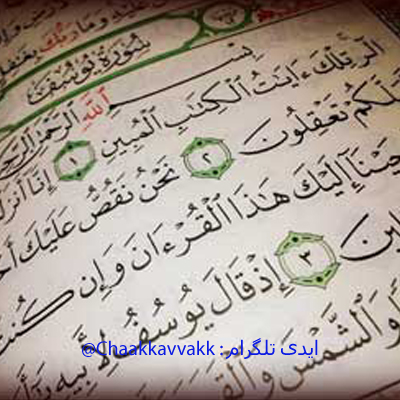 وَمَا رَبُّكَ بِغَٰفِلٍ
سُورَةُ يُوسُفَ
بِسْمِ اللَّهِ الرَّحْمَٰنِ الرَّحِيمِ
الٓر تِلْكَ ءَايَٰتُ ٱلْكِتَٰبِ ٱلْمُبِينِ ١ إِنَّآ أَنزَلْ
لَّعَلَّكُمْ تَعْقِلُونَ ٢ نَحْنُ نَقُصُّ عَلَيْكَ أَحْ
حَيْنَآ إِلَيْكَ هَٰذَا ٱلْقُرْءَانَ وَإِن كُنتَ
لِينَ ٣ إِذْ قَالَ يُوسُفُ لِأَبِيهِ يَٰٓأَ
وَٱلشَّمْسَ وَٱلْقَمَرَ
ایدی تلگرام : @Chaakkavvakk